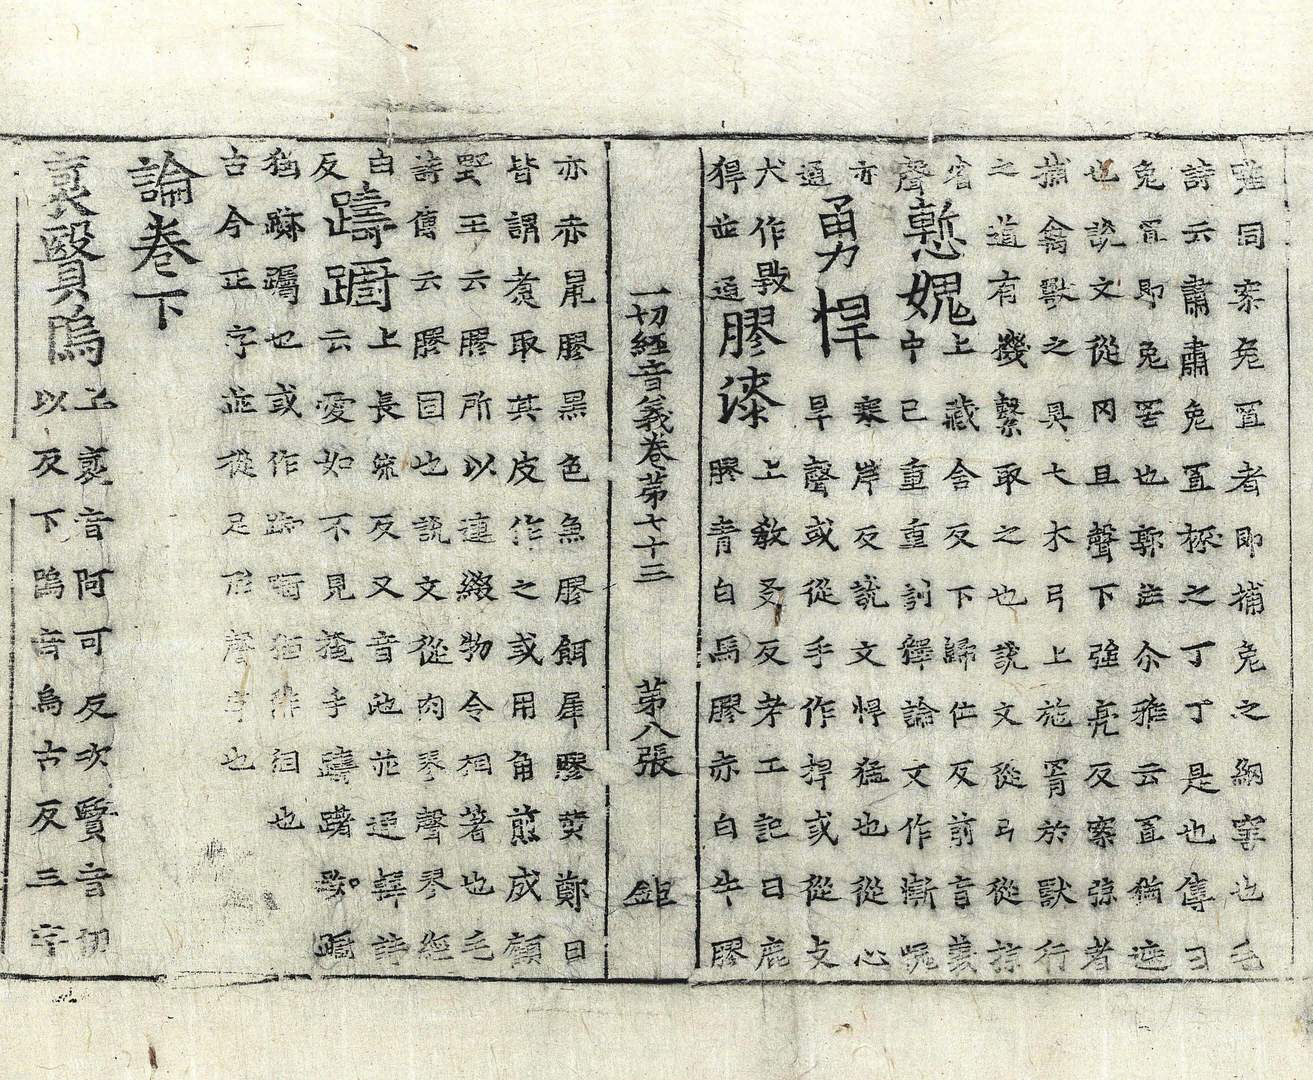 雖同案兔罝者即捕兔之網罕也毛
詩云肅肅兔罝椓之丁丁是也傳曰
兔罝即兔罟也郭注尒雅云罝猶遮
也說文從网且聲下強亮反案弶者
捕禽獸之具大木弓上施罥於獸行
之道有機繫取之也說文從弓從掠
省
慙媿
上藏含反下歸位反前音義
聲
中已重重訓釋論文作慚愧
亦
勇悍
寒岸反說文悍猛也從心
通
旱聲或從手作捍或從攴
犬作戰
膠漆
上教爻反考工記曰鹿
猂並通
膠青白馬膠赤白牛膠
一切經音義卷第七十三 第八張 鉅
亦赤鼠膠黑色魚膠餌犀膠黃鄭曰
皆謂煮取其皮作之或用角煎成顧
野王云膠所以連綴物令相著也毛
詩傳云膠固也說文從肉翏聲翏經
白
躊躕
上長流反又音池並逕韓詩
反
云愛如不見掩手躊躇
猶
躑躅也或作
也
古今正字並從足形聲字也
論卷下
裒賢鳴
上裒音阿可反次賢音切
以反下鳴音烏古反三字